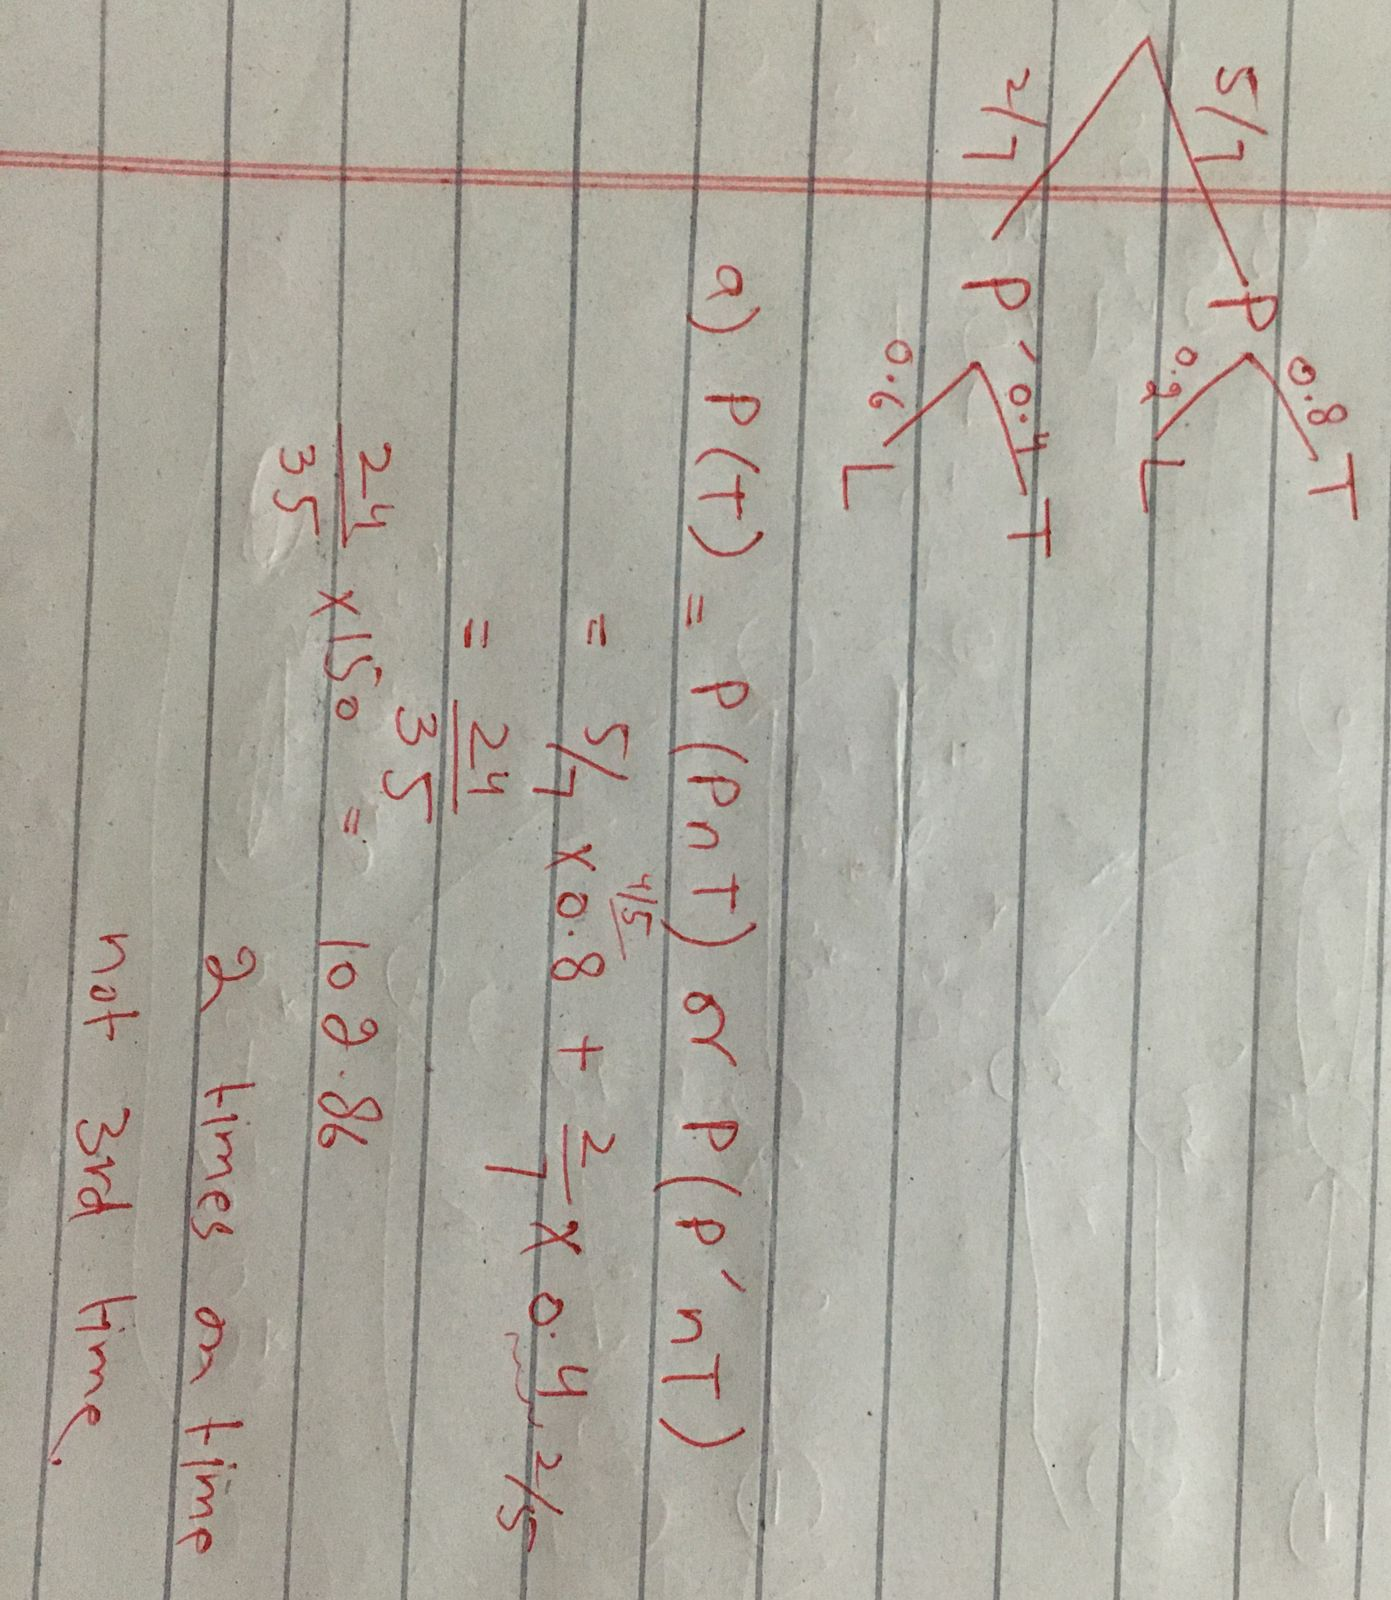 5/7 P 0.8 T
0.2 L
2/7 P' 0.4 T
0.6 L
a) P(T) = P(P∩T) or P(P'∩T)
4/5
= 5/7 × 0.8 + 2/7 × 0.4 2/5
= 24/35
24/35 × 150 = 102.86
2 times on time
not 3rd time.